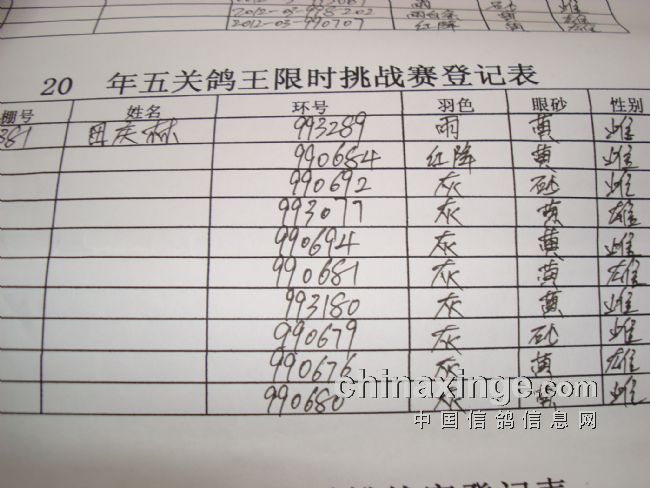 2012-03-990707 红降 黄 雄
20 年五关鸽王限时挑战赛登记表
棚号 姓名 环号 羽色 眼砂 性别
381 田庆林 993289 雨 黄 雌
990684 红降 黄 雌
990692 灰 砂 雌
993077 灰 黄 雄
990694 灰 黄 雌
990681 灰 黄 雄
993180 灰 黄 雌
990679 灰 砂 雌
990676 灰 黄 雄
990680 灰 黄 雌
chinaxinge.com
中国信鸽信息网
登记表